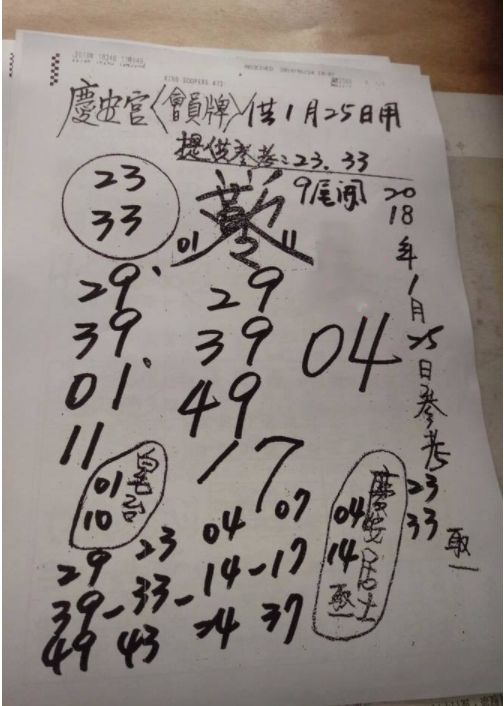 慶安宮〈會員牌〉供1月25日用
提供參考:23.33
23
33
9尾闖
01 11
2018年1月25日參考
23
33
取一
29 29
39 39
01 49
11 17
04
01
10
04
14
取一
29 23 04 07
39-33-14-17
49 43 24 37